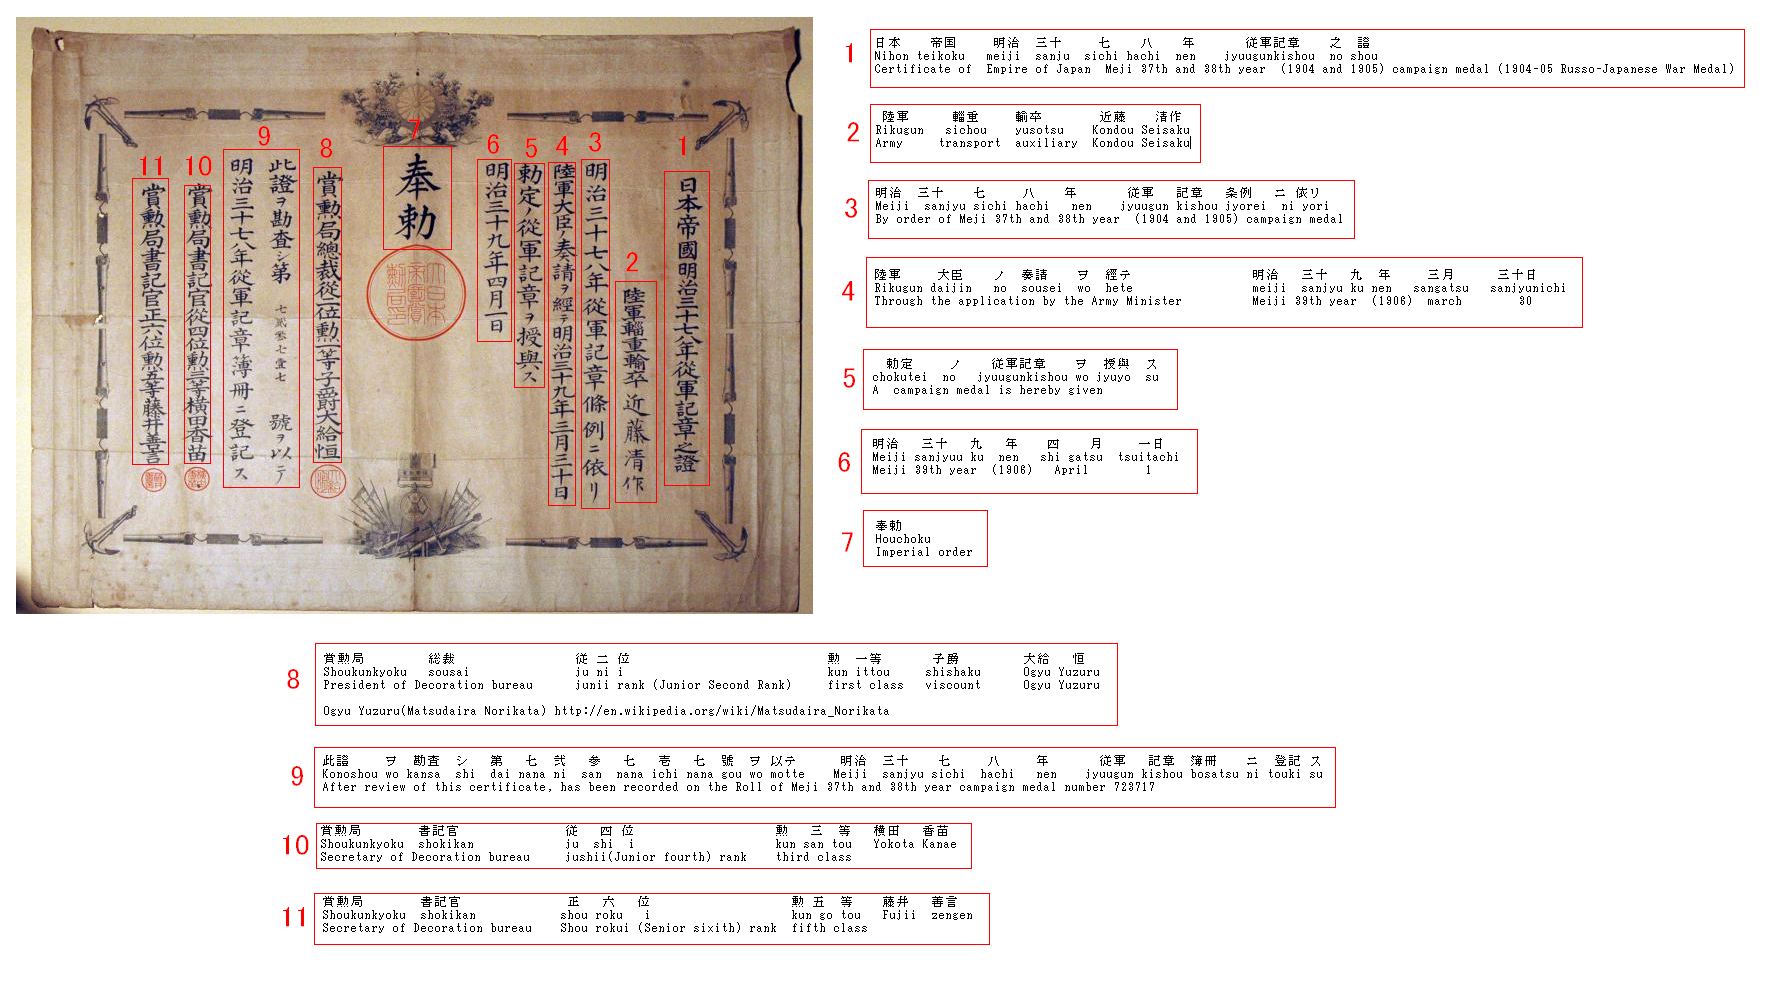 日本帝國明治三十七八年從軍記章之證
陸軍輜重輸卒 近藤清作
明治三十七八年從軍記章條例ニ依リ
陸軍大臣ノ奏請ヲ經テ明治三十九年三月三十日
勅定ノ從軍記章ヲ授與ス
明治三十九年四月一日
奉勅
賞勲局總裁從二位勲一等子爵大給恒
此證ヲ勘査シ第七貳參七壹七號ヲ以テ
明治三十七八年從軍記章簿冊ニ登記ス
賞勲局書記官從四位勲三等横田香苗
賞勲局書記官正六位勲五等藤井善言
1
2
3
4
5
6
7
8
9
10
11
1
日本 帝国 明治 三十 七 八 年 従軍記章 之 證
Nihon teikoku meiji sanju sichi hachi nen jyuugunkishou no shou
Certificate of Empire of Japan Meji 37th and 38th year (1904 and 1905) campaign medal (1904-05 Russo-Japanese War Medal)
2
陸軍 輜重 輸卒 近藤 清作
Rikugun sichou yusotsu Kondou Seisaku
Army transport auxiliary Kondou Seisaku
3
明治 三十 七 八 年 従軍 記章 条例 ニ 依リ
Meiji sanjyu sichi hachi nen jyuugun kishou jyorei ni yori
By order of Meji 37th and 38th year (1904 and 1905) campaign medal
4
陸軍 大臣 ノ 奏請 ヲ 經テ 明治 三十 九 年 三月 三十日
Rikugun daijin no sousei wo hete meiji sanjyu ku nen sangatsu sanjyunichi
Through the application by the Army Minister Meiji 39th year (1906) march 30
5
勅定 ノ 従軍記章 ヲ 授與 ス
chokutei no jyuugunkishou wo jyuyo su
A campaign medal is hereby given
6
明治 三十 九 年 四 月 一日
Meiji sanjyuu ku nen shi gatsu tsuitachi
Meiji 39th year (1906) April 1
7
奉勅
Houchoku
Imperial order
8
賞勲局 総裁 従 二 位 勲 一等 子爵 大給 恒
Shoukunkyoku sousai ju ni i kun ittou shishaku Ogyu Yuzuru
President of Decoration bureau junii rank (Junior Second Rank) first class viscount Ogyu Yuzuru
Ogyu Yuzuru(Matsudaira Norikata) http://en.wikipedia.org/wiki/Matsudaira_Norikata
9
此證 ヲ 勘査 シ 第 七 弐 参 七 壱 七 號 ヲ 以テ 明治 三十 七 八 年 従軍 記章 簿冊 ニ 登記 ス
Konoshou wo kansa shi dai nana ni san nana ichi nana gou wo motte Meiji sanjyu sichi hachi nen jyuugun kishou bosatsu ni touki su
After review of this certificate, has been recorded on the Roll of Meji 37th and 38th year campaign medal number 723717
10
賞勲局 書記官 従 四 位 勲 三 等 横田 香苗
Shoukunkyoku shokikan ju shi i kun san tou Yokota Kanae
Secretary of Decoration bureau jushii(Junior fourth) rank third class
11
賞勲局 書記官 正 六 位 勲 五 等 藤井 善言
Shoukunkyoku shokikan shou roku i kun go tou Fujii zengen
Secretary of Decoration bureau Shou rokui (Senior sixith) rank fifth class